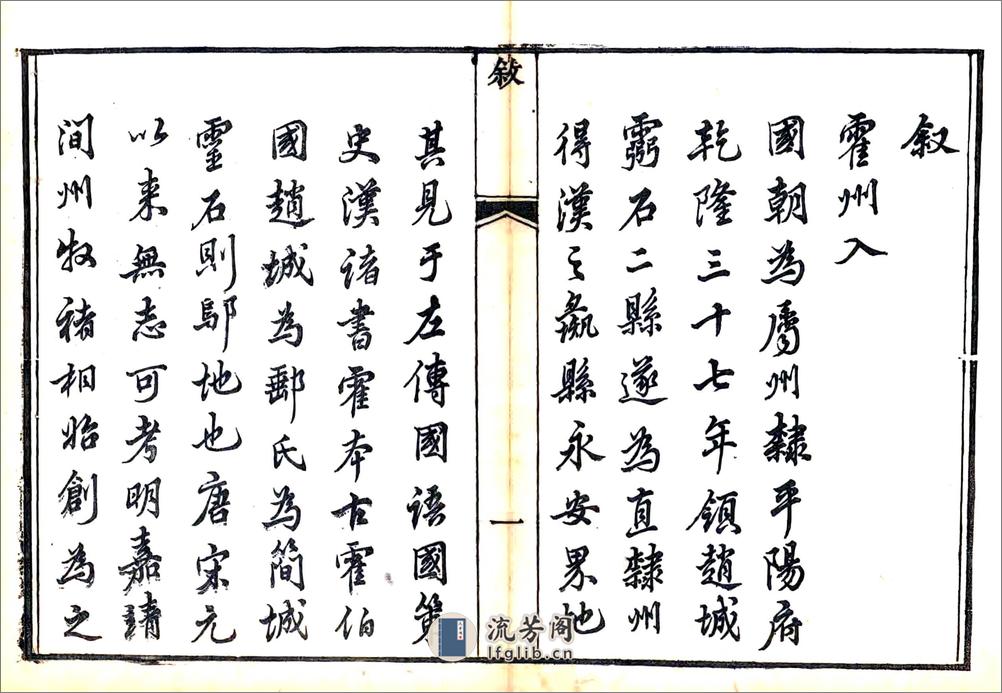 叙
霍州入
國朝為屬州隸平陽府
乾隆三十七年領趙城
靈石二縣遂為直隸州
得漢之彘縣永安界地
敘
一
其見于左傳國語國策
史漢諸書霍本古霍伯
國趙城為郵氏為簡城
靈石則鄔地也唐宋元
以来無志可考明嘉靖
間州牧褚相始創為之
流芳阁
lfglib.cn